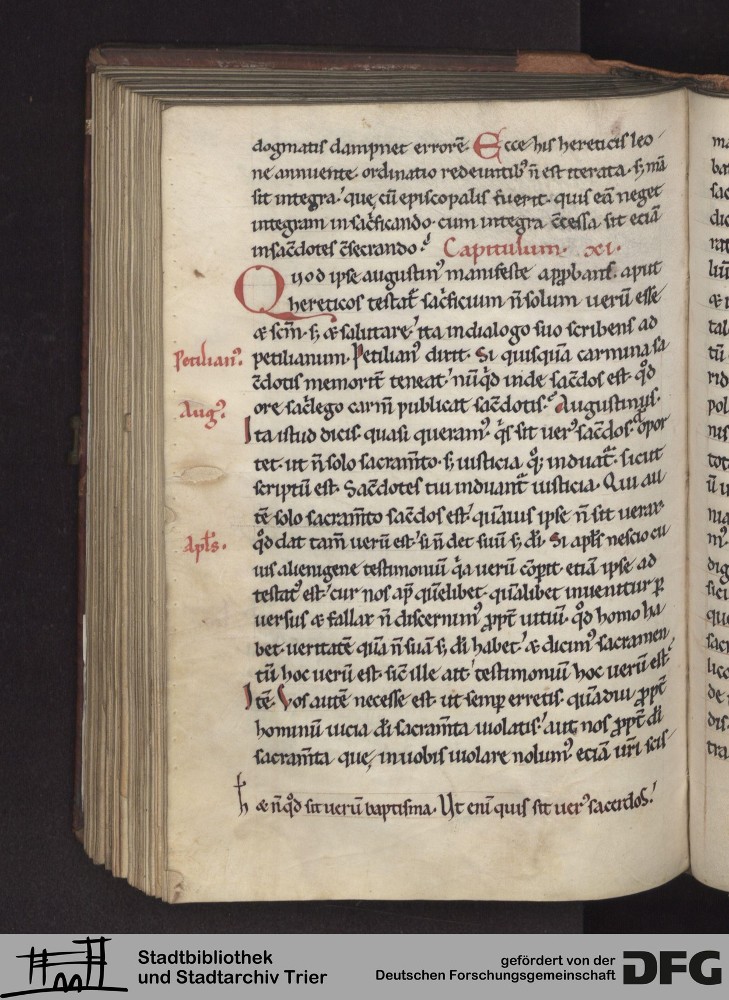 dogmatis dampnet errorē. Ecce his hereticis leo
ne annuente ordinatio redeuntib; n̄ est iterata. s; mā
sit integra. que cū episcopalis fuerit. quis eā neget
integram in sac̄ficando. cum integra c̄cessa sit eciā
in sac̄dotes c̄secrando. Capitulum. xi.
Quod ipse augustin⁹ manifeste app̱bans. aput
hereticos testat᷒ sac̄ficium n̄ solum uerū esse
& sc̄m. s; & salutare. ita in dialogo suo scribens ad
Petilian⁹.
petilianum. Petilian⁹ dixit. Si quisquā carmina sa
c̄dotis memorit̄ teneat. nūq̇d inde sac̄dos est. qd̄
Aug⁹.
ore sac̄lego carm̄ publicat sac̄dotis. Augustinus.
Ita istud dicis. quasi queram⁹. q̇s sit uer⁹ sac̄dos. opor
tet ut n̄ solo sacram̄to. s; iusticia q; induat᷒. sicut
scriptū est. Sac̄dotes tui induant᷒ iusticia. Qui au
tē solo sacram̄to sac̄dos est. quāuis ipse n̄ sit uerax
Apl̄s.
qd̄ dat tam̄ uerū est. si n̄ det suū s; dī. Si apl̄s nescio cu
ius alienigene testimoniū q̇a uerū cōperit. etiā ipse ad
testat⁹ est. cur nos ap̄ quēlibet. quālibet inuenitur ꝑ
uersus & fallax n̄ discernim⁹ ꝓpt̄ uitiū. qd̄ homo ha
bet. ueritatē quā n̄ suā s; dī habet. & dicim⁹ sacramen
tū hoc uerū est. sic̄ ille ait. testimoniū hoc uerū est.
Itē. Vos autē necesse est. ut semꝑ erretis. quādiu ꝓpt̄
hominū uicia dī sacram̄ta uiolatis. aut nos ꝓpt̄ dī
sacram̄ta que in uobis uiolare nolum⁹. eciā ur̄i scis
h & n̄ qd̄ sit uerū baptisma. Ut enī quis sit uer⁹ sacerdos.
Stadtbibliothek
und Stadtarchiv Trier
gefördert von der
Deutschen Forschungsgemeinschaft
DFG